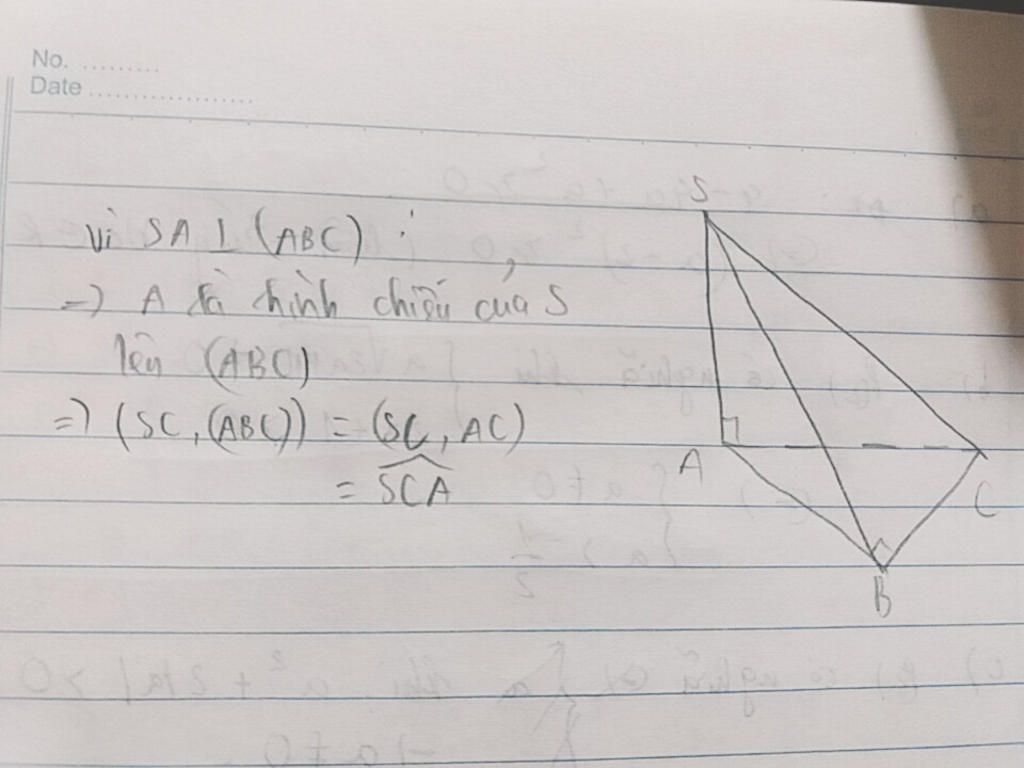 No. .........
Date ...................
Vì SA ⊥ (ABC) :
=> A là hình chiếu của S
lên (ABC)
=> (SC, (ABC)) = (SC, AC)
= \widehat{SCA}
S
A
C
B